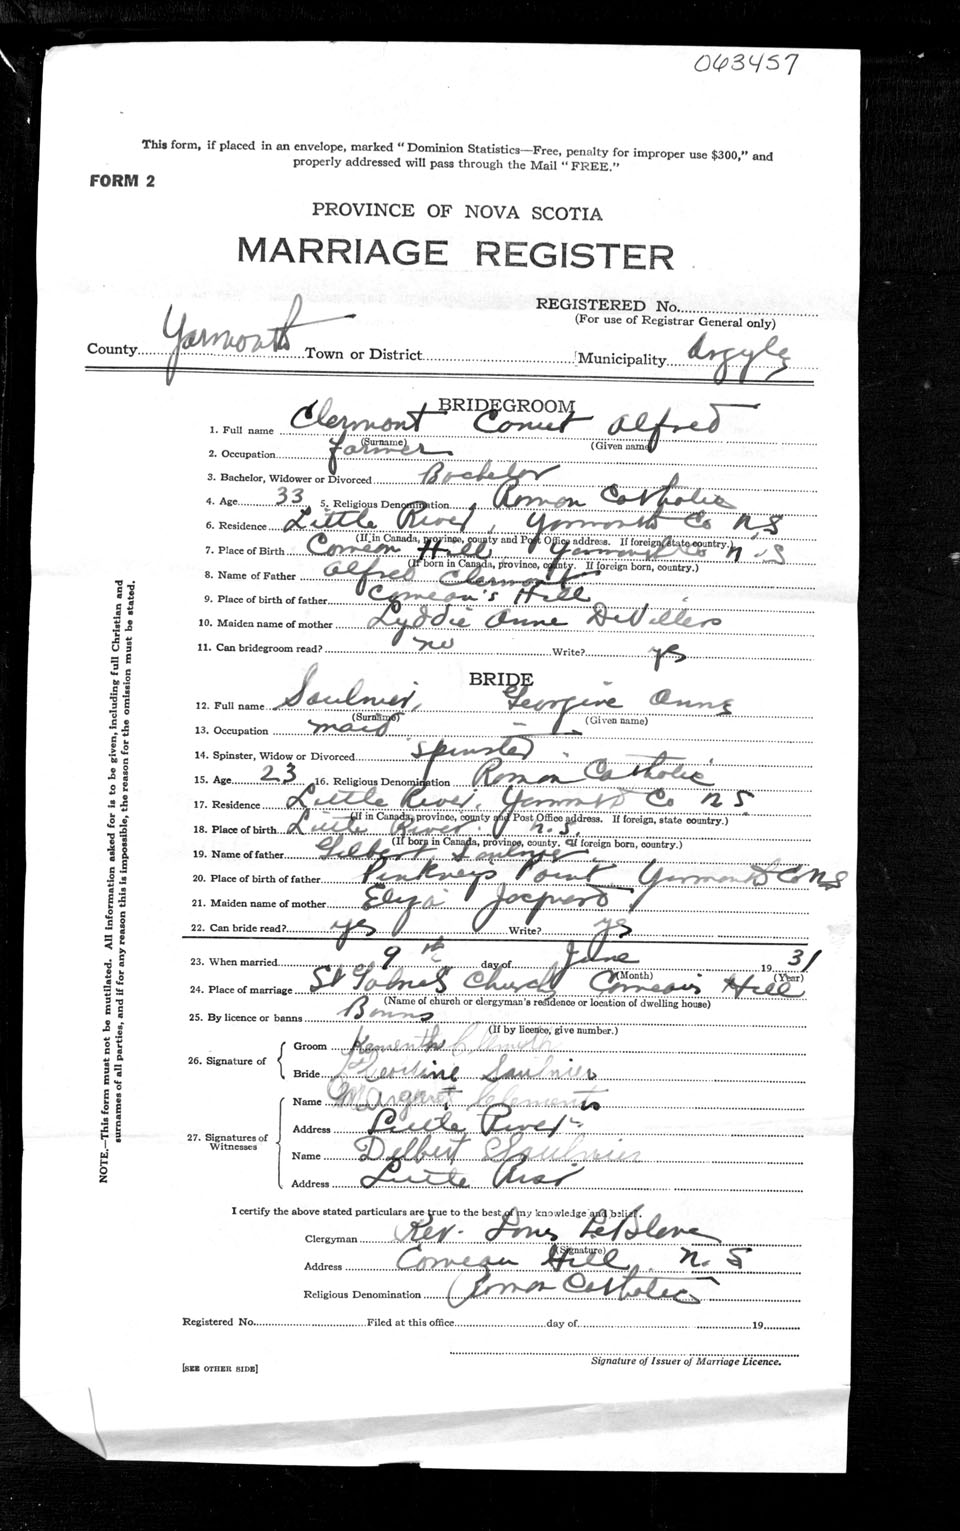 063457
This form, if placed in an envelope, marked "Dominion Statistics—Free, penalty for improper use $300," and
properly addressed will pass through the Mail "FREE."
FORM 2
PROVINCE OF NOVA SCOTIA
MARRIAGE REGISTER
REGISTERED No.
(For use of Registrar General only)
County Yarmouth Town or District Municipality Argyle
BRIDEGROOM
1. Full name Clermont Alfred
(Surname) (Given name)
2. Occupation farmer
3. Bachelor, Widower or Divorced Bachelor
4. Age 33 5. Religious Denomination Roman Catholic
6. Residence Little River, Yarmouth Co N S
(If in Canada, province, county and Post Office address. If foreign, state country.)
7. Place of Birth Comeau Hill Yarmouth Co N.S
(If born in Canada, province, county. If foreign born, country.)
8. Name of Father Alfred Clermont
9. Place of birth of father Comeau's Hill
10. Maiden name of mother Lyddie Anne DeVillers
11. Can bridegroom read? no Write? yes
BRIDE
12. Full name Saulnier, Georgine Anne
(Surname) (Given name)
13. Occupation maid
14. Spinster, Widow or Divorced Spinster
15. Age 23 16. Religious Denomination Roman Catholic
17. Residence Little River, Yarmouth Co N S
(If in Canada, province, county and Post Office address. If foreign, state country.)
18. Place of birth Little River. N.S.
(If born in Canada, province, county. If foreign born, country.)
19. Name of father Gilbert Saulnier
20. Place of birth of father Pinkneys Point Yarmouth Co NS
21. Maiden name of mother Eliza Jacquard
22. Can bride read? yes Write? yes
23. When married 9th day of June 19 31
(Month) (Year)
24. Place of marriage St Church Comeau's Hill
(Name of church or clergyman's residence or location of dwelling house)
25. By licence or banns Banns
(If by licence, give number.)
26. Signature of Groom
Bride Saulnier
27. Signatures of Witnesses
Name Margaret Clements
Address Little River
Name Delbert Saulnier
Address Little River
I certify the above stated particulars are true to the best of my knowledge and belief.
Clergyman Rev. LeBlanc
(Signature)
Address Comeau Hill N. S
Religious Denomination Roman Catholic
Registered No. Filed at this office day of 19
Signature of Issuer of Marriage Licence.
[SEE OTHER SIDE]
NOTE.—This form must not be mutilated. All information asked for is to be given, including full Christian and
surnames of all parties, and if for any reason this is impossible, the reason for the omission must be stated.